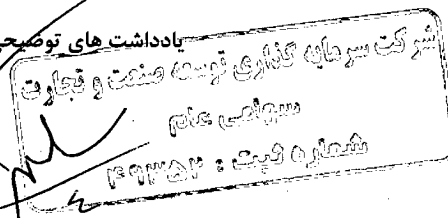 یادداشت های توضیحی
شرکت سرمایه گذاری توسعه صنعت و تجارت
سهامی عام
شماره ثبت : ۴۹۳۵۲